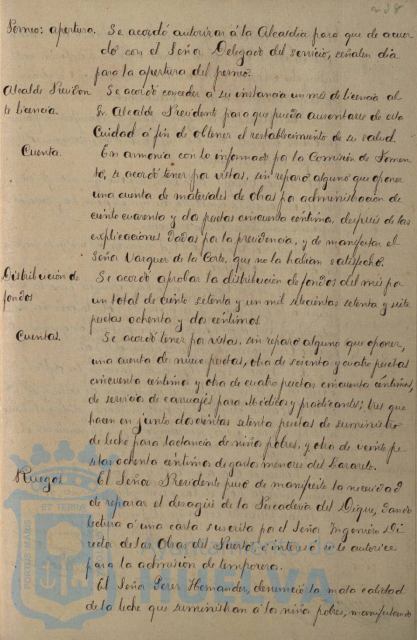 28
Porneo: apertura. Se acordó autorizar á la Alcaldía para que de acuer
do con el Señor Delegado del servicio, señalen día
para la apertura del porneo.
Alcalde Presiden Se acordó conceder á su instancia un mes de licencia al
te licencia. Sr. Alcalde Presidente para que pueda ausentarse de esta
Ciudad á fin de obtener el restablecimiento de su salud.
Cuenta. En armonia con lo informado por la Comisión de Fomen
to, se acordó tener por vistas, sin reparo alguno que oponer
una cuenta de materiales de obras por administración de
ciento cuarenta y dos pesetas cincuenta céntimos, después de las
explicaciones dadas por la presidencia, y de manifestar el
Señor Vazquez de la Corte, que no le habían satisfecho.
Distribución de Se acordó aprobar la distribución de fondos del mes por
fondos un total de ciento setenta y un mil setenta y siete
pesetas ochenta y dos centimos.
Cuentas. Se acordó tener por vistas, sin reparo alguno que oponer,
una cuenta de nueve pesetas, otra de sesenta y cuatro pesetas
cincuenta centimos y otra de cuatro pesetas cincuenta céntimos,
de servicio de carruajes para Médicos y practicantes; tres que
hacen en junto doscientas setenta pesetas de suministro
de leche para lactancia de niños pobres, y otra de veinte pe
setas ochenta céntimos de gastos menores del Lazareto.
Ruegos El Señor Presidente puso de manifiesto la necesidad
de reparar el desagüe de la Pescadería del Dique, dando
lectura á una carta suscrita por el Señor Ingeniero Di
rector de las Obras del Puerto, é interesó se le autorice
para la admisión de temporeros.
El Señor Perez Hernandez, denunció la mala calidad
de la leche que suministran á los niños pobres, manifestando
PORTUS MARIS
ET TERRAE
HUELVA